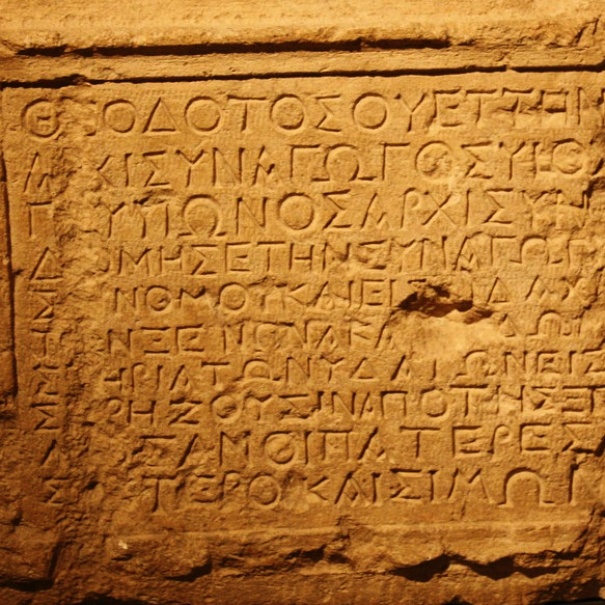 ΘΕΟΔΟΤΟΣΟΥΕΤΤΗΝ
ΑΧΙΣΥΝΑΓΩΓΟΣΥΙΟΣΑ
ΓΥΥΙΩΝΟΣΑΡΧΙΣΥΝ
ΔΟΜΗΣΕΤΗΝΣΥΝΑΓΩΓ
ΣΙΝΝΟΜΟΥΚΑΙΕΙΣΔΙΔΑΧ
ΤΟΝΞΕΝΩΝΑΚΑ ΔΩΜ
ΗΡΙΑΤΩΝΥΔΑΤΩΝΕΙΣ
ΡΗΖΟΥΣΙΝΑΠΟΤΗΣΞΕ
ΛΣΑΝΟΙΠΑΤΕΡΕΣ
ΣΥΤΕΡΟΙΚΑΙΣΙΜΩΝ